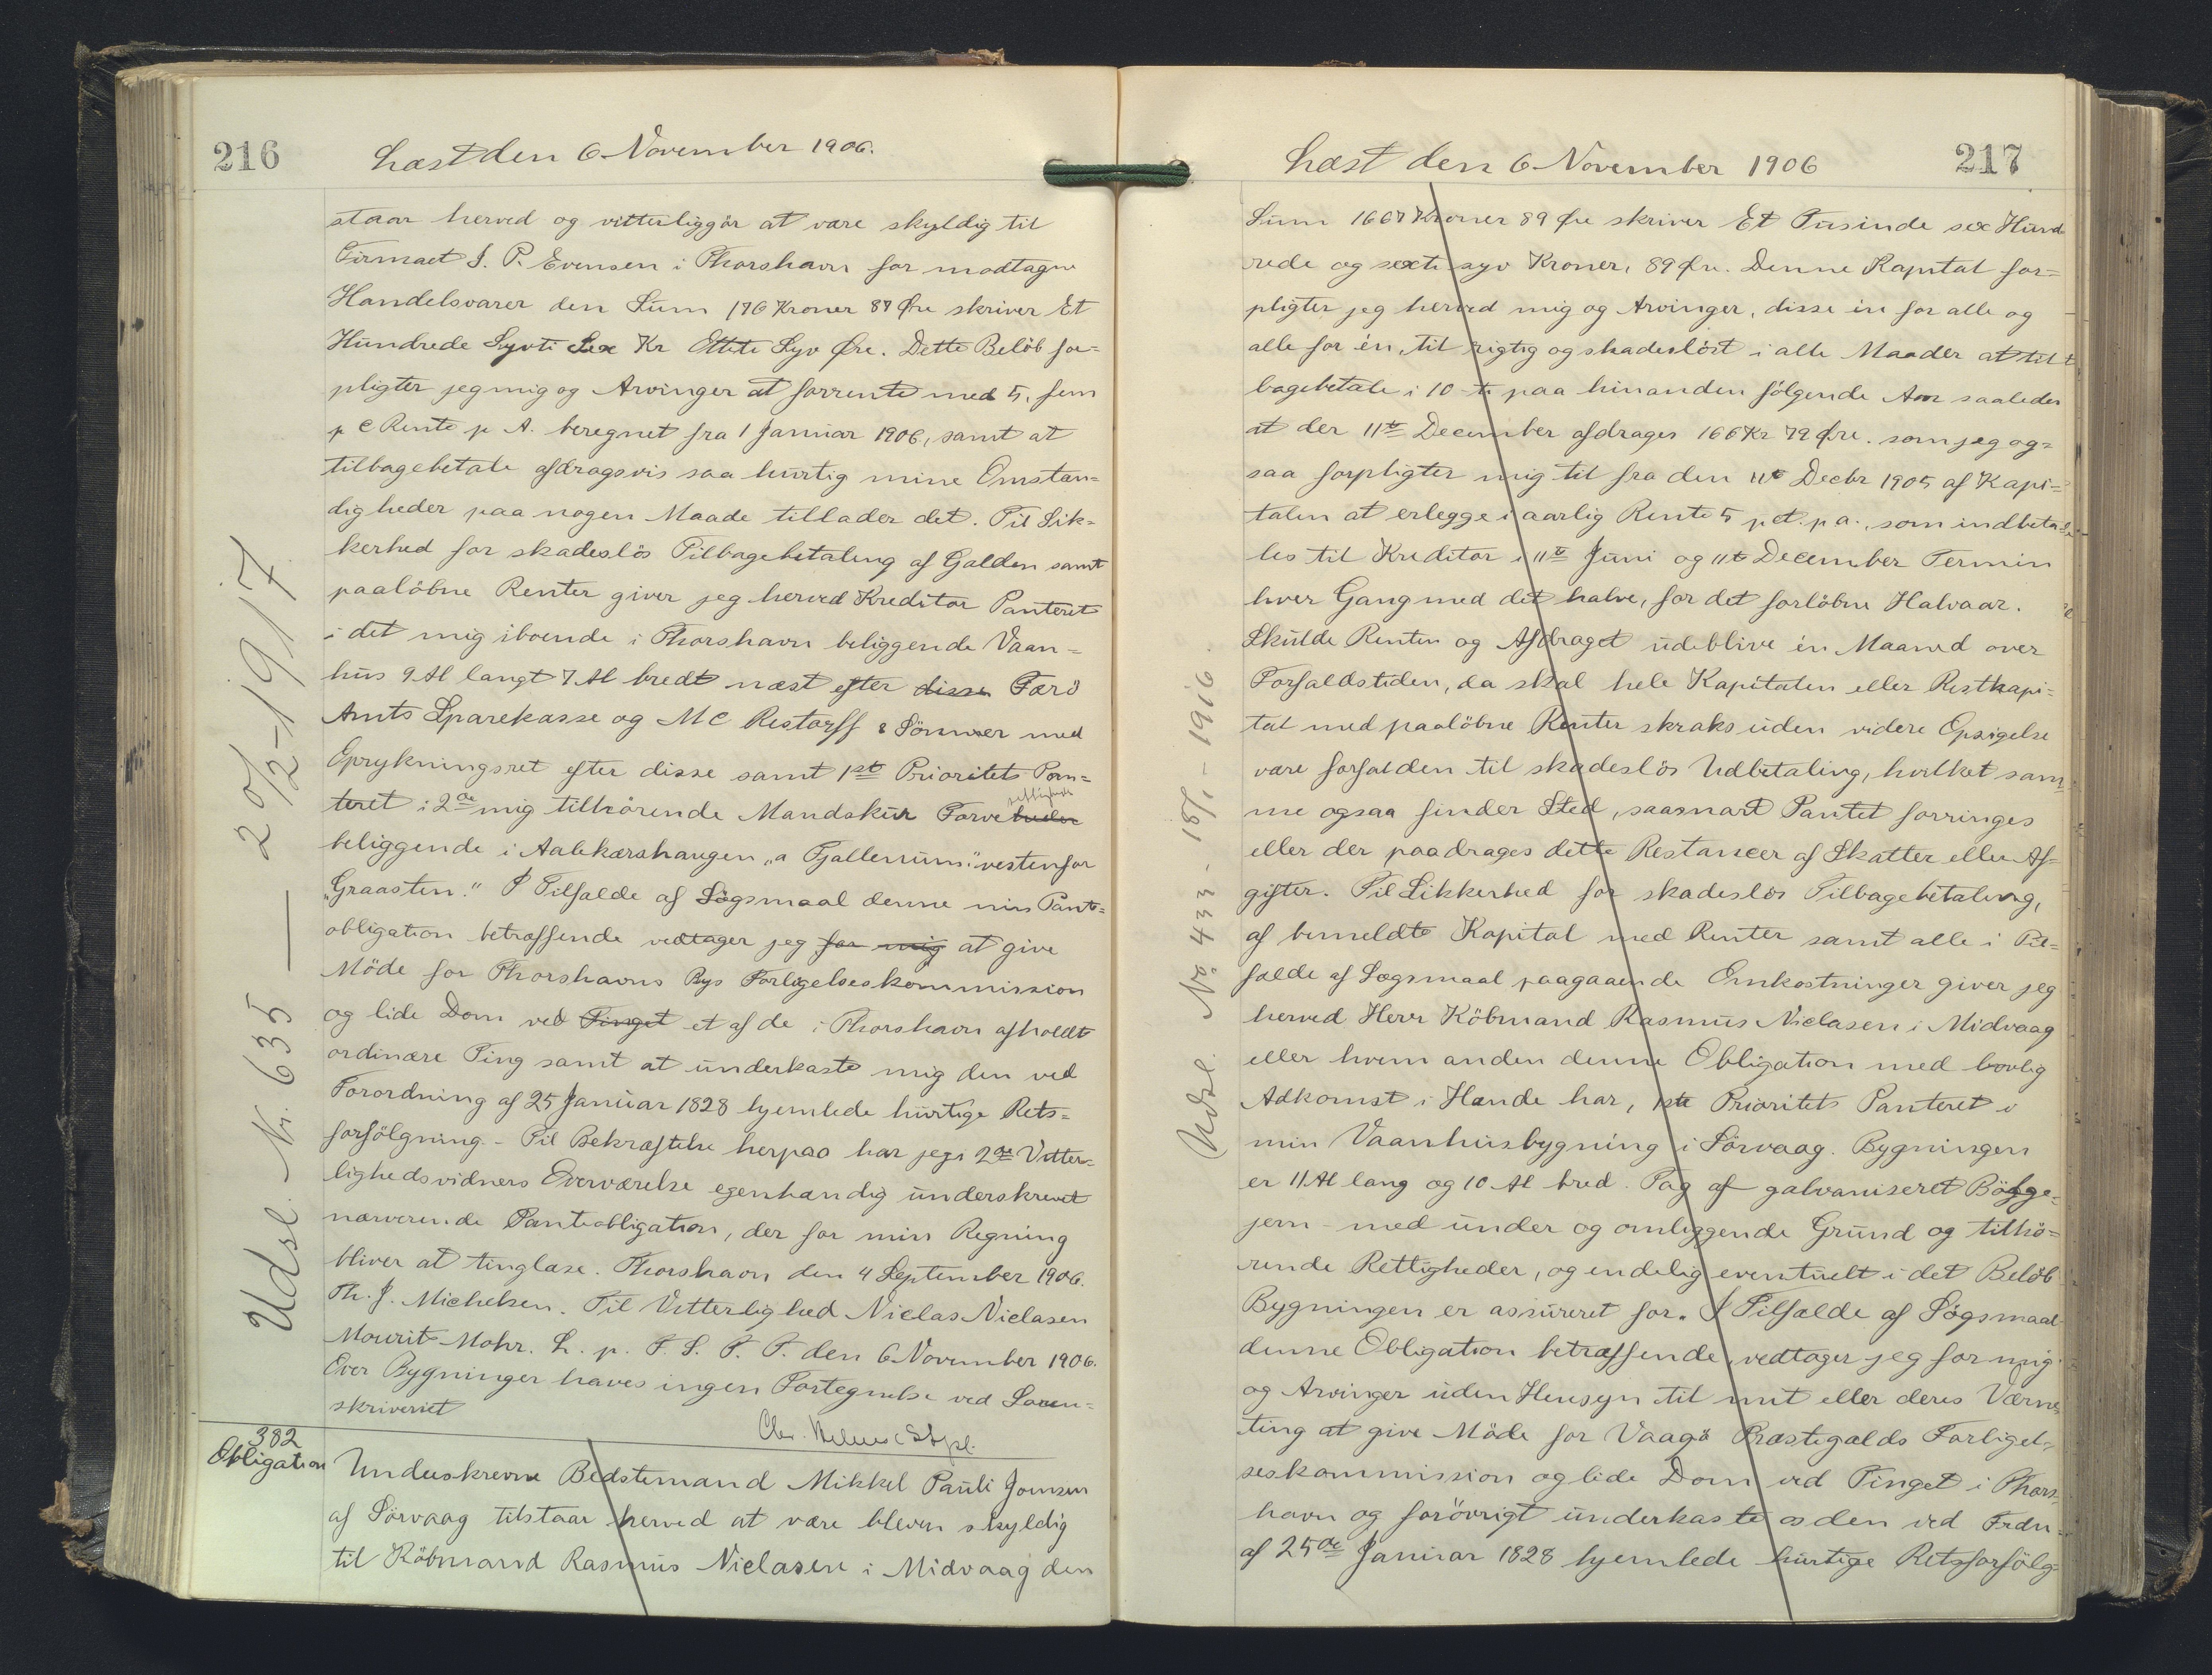 216
Læst den 6 November 1906.
staar herved og vitterliggör at være skyldig til
Firmaet J. P. Evensen i Thorshavn for modtagne
Handelsvarer den Sum 176 Kroner 87 Øre skriver Et
Hundrede Syvti Sex Kr Ottete Syv Øre. Dette Belöb for=
pligter jeg mig og Arvinger at forrente med 5, fem
p C Rente p A. beregnet fra 1 Januar 1906, samt at
tilbagebetale afdragsvis saa hurtig mine Omstæn=
digheder paa nogen Maade tillader det. Til Sik=
kerhed for skadeslös Tilbagebetaling af Gælden samt
paalöbne Renter giver jeg herved Kreditor Panteret
i det mig iboende i Thorshavn beliggende Vaan=
hus 9 Al langt 7 Al bredt næst efter disse Færö
Amts Sparekasse og M C Restorff & Sönner med
Oprykningsret efter disse samt 1ste Prioritets Pan=
teret i 2de mig tilhörende Mandskur Torve
beliggende i Aalekærshaugen „a Fjallenum" vestenfor
„Graasten." I Tilfælde af Sögsmaal denne min Pant=
obligation betræffende vedtager jeg for mig at give
Möde for Thorshavns Bys Forligelseskommission
og lide Dom ved Tinget et af de i Thorshavn afholdte
ordinære Ting samt at underkaste mig den ved
Forordning af 25 Januar 1828 hjemlede hurtige Rets=
forfölgning. - Til Bekræftelse herpaa har jeg i 2de Vitter=
lighedsvidners Overværelse egenhændig underskrevet
nærværende Panteobligation, der for min Regning
bliver at tinglæse. Thorshavn den 4 September 1906.
Th. J. Michelsen. Til Vitterlighed Niclas Niclasen
Mourits Mohr. L. p. F. S. T. T. den 6 November 1906.
Over Bygninger haves ingen Fortegnelse ved Soren=
skriveriet
Udsl. Nr. 635 — 20/2-1917
382
Obligation
Underskrevne Bedstemand Mikkel Pauli Joensen
af Sörvaag tilstaar herved at være bleven skyldig
til Köbmand Rasmus Niclasen i Midvaag den
217
Læst den 6 November 1906
Sum 1667 Kroner 89 Øre skriver Et Tusinde sex Hund
rede og sexti syv Kroner, 89 Øre. Denne Kapital for=
pligter jeg herved mig og Arvinger, disse én for alle og
alle for én, til rigtig og skadeslöst i alle Maader at til
bagebetale i 10 - ti paa hinanden fölgende Aar saaledes
at der 11te December afdrages 166 Kr 79 Øre. som jeg og=
saa forpligter mig til fra den 11te Decbr 1905 af Kapi=
talen at erlegge i aarlig Rente 5 p ct. p a., som indbeta=
les til Kreditor i 11te Juni og 11te December Termin
hver Gang med det halve, for det forlöbne Halvaar.
Skulde Renten og Afdraget udeblive én Maaned over
Forfaldstiden, da skal hele Kapitalen eller Restkapi=
tal med paalöbne Renter skraks uden videre Opsigelse
være forfalden til skadeslös Udbetaling, hvilket sam
me ogsaa finder Sted, saasnart Pantet forringes
eller der paadrages dette Restancer af Skatter eller Af=
gifter. Til Sikkerhed for skadeslös Tilbagebetaling,
af bemeldte Kapital med Renter samt alle i Til=
fælde af Søgsmaal paagaaende Omkostninger giver jeg
herved Herr Köbmand Rasmus Niclasen i Midvaag
eller hvem anden denne Obligation med lovlig
Adkomst i Hænde har, 1ste Prioritets Panteret i
min Vaanhusbygning i Sörvaag. Bygningen
er 11 Al lang og 10 Al bred. Tag af galvaniseret Bölge=
jern - med under og omliggende Grund og tilhö=
rende Rettigheder, og endelig eventuelt i det Belöb
Bygningen er assureret for. I Tilfælde af Sögsmaal
denne Obligation betræffende, vedtager jeg for mig
og Arvinger uden Hensyn til mit eller deres Værne
ting at give Möde for Vaagö Præstegælds Forligel=
seskommission og lide Dom ved Tinget i Thors=
havn og forövrigt underkaste os den ved Frdn
af 25de Januar 1828 hjemlede hurtige Retsforfölg=
Udsl. No 433 - 18/1 - 1916.